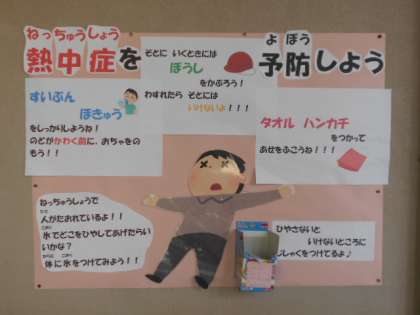 ねっちゅうしょう
熱中症を
よ ぼう
予防しよう
そとに いくときには
ぼうし
をかぶろう！
わすれたら そとには
いけないよ！！！
すいぶん
ほきゅう
をしっかりしようね！
のどがかわく前に、おちゃをの
もう！！
タオル ハンカチ
をつかって
あせをふこうね！！！
ねっちゅうしょうで
ひと
人がたおれているよ！！
こおり
氷でどこをひやしてあげたらい
いかな？
からだ こおり
体に氷をつけてみよう！！
ひやさないと
いけないところに
じしゃくをつけてるよ♪